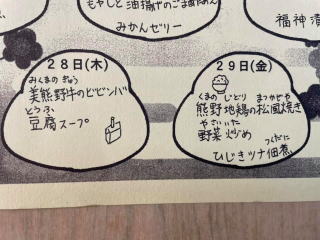 もやしと油揚げのごまだれあん
みかんゼリー
福神漬
28日(木)
みくまの ぎゅう
美熊野牛のビビンバ
とうふ
豆腐スープ
29日(金)
くまの じどり まつかぜや
熊野地鶏の松風焼き
やさいいた
野菜炒め
つくだに
ひじきツナ佃煮